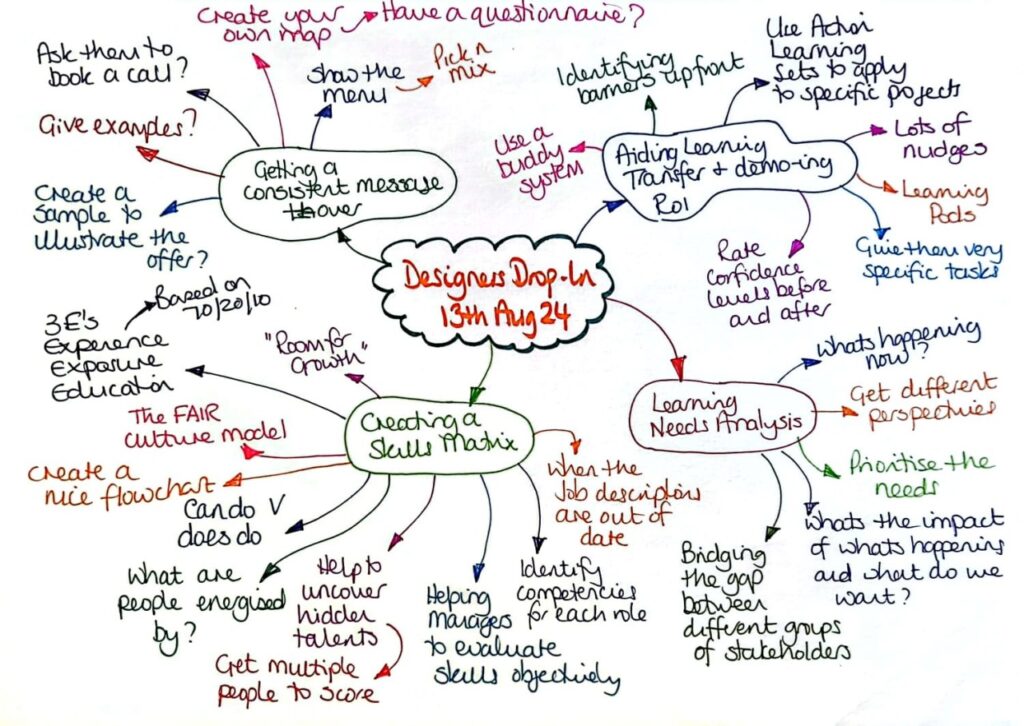 Create your
own map
Have a questionnaire?
Ask them to
book a call?
Show the
menu
Pick n
mix
Give examples?
Getting a
consistent message
over
Create a
sample to
illustrate the
offer?
Identifying
barriers upfront
Use Action
Learning
Sets to apply
to specific projects
Use a
buddy
system
Aiding Learning
Transfer + demo-ing
ROI
Lots of
nudges
Learning
Pods
Give them very
specific tasks
Rate
confidence
levels before
and after
Designers Drop-In
13th Aug 24
Based on
70/20/10
3E's
Experience
Exposure
Education
"Room for
Growth"
The FAIR
culture model
Create a
nice flowchart
Can do V
does do
What are
people energised
by?
Creating a
Skills Matrix
Help to
uncover
hidden
talents
Get multiple
people to score
Helping
managers
to evaluate
skills objectively
Identify
competencies
for each role
When the
Job descriptions
are out of
date
Learning
Needs Analysis
Whats happening
now?
Get different
perspectives
Prioritise the
needs
Whats the impact
of whats happening
and what do we
want?
Bridging
the gap
between
different groups
of stakeholders